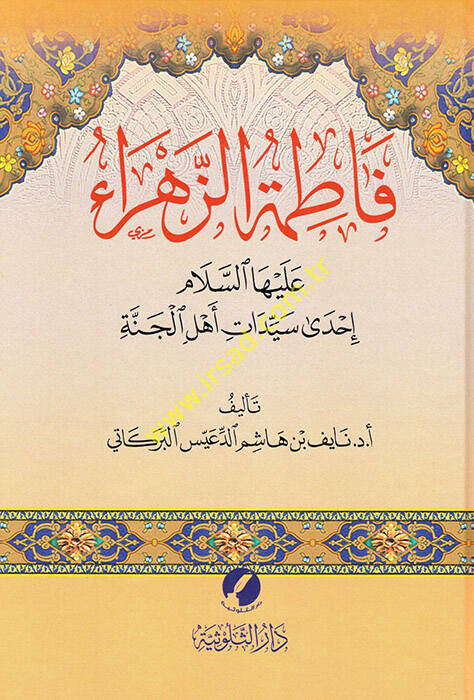 فَاطِمَةُ الزَّهْرَاءُ
عَلَيْهَا السَّلَام
إِحْدَى سَيِّدَاتِ أَهْلِ الْجَنَّةِ
تَأْلِيفُ
أ.د. نَايف بْن هَاشِم الدعيّس البَرَكَاتي
www.irsad.com.tr
دار الثلوثية
دَارُ الثُّلُوثِيَّة